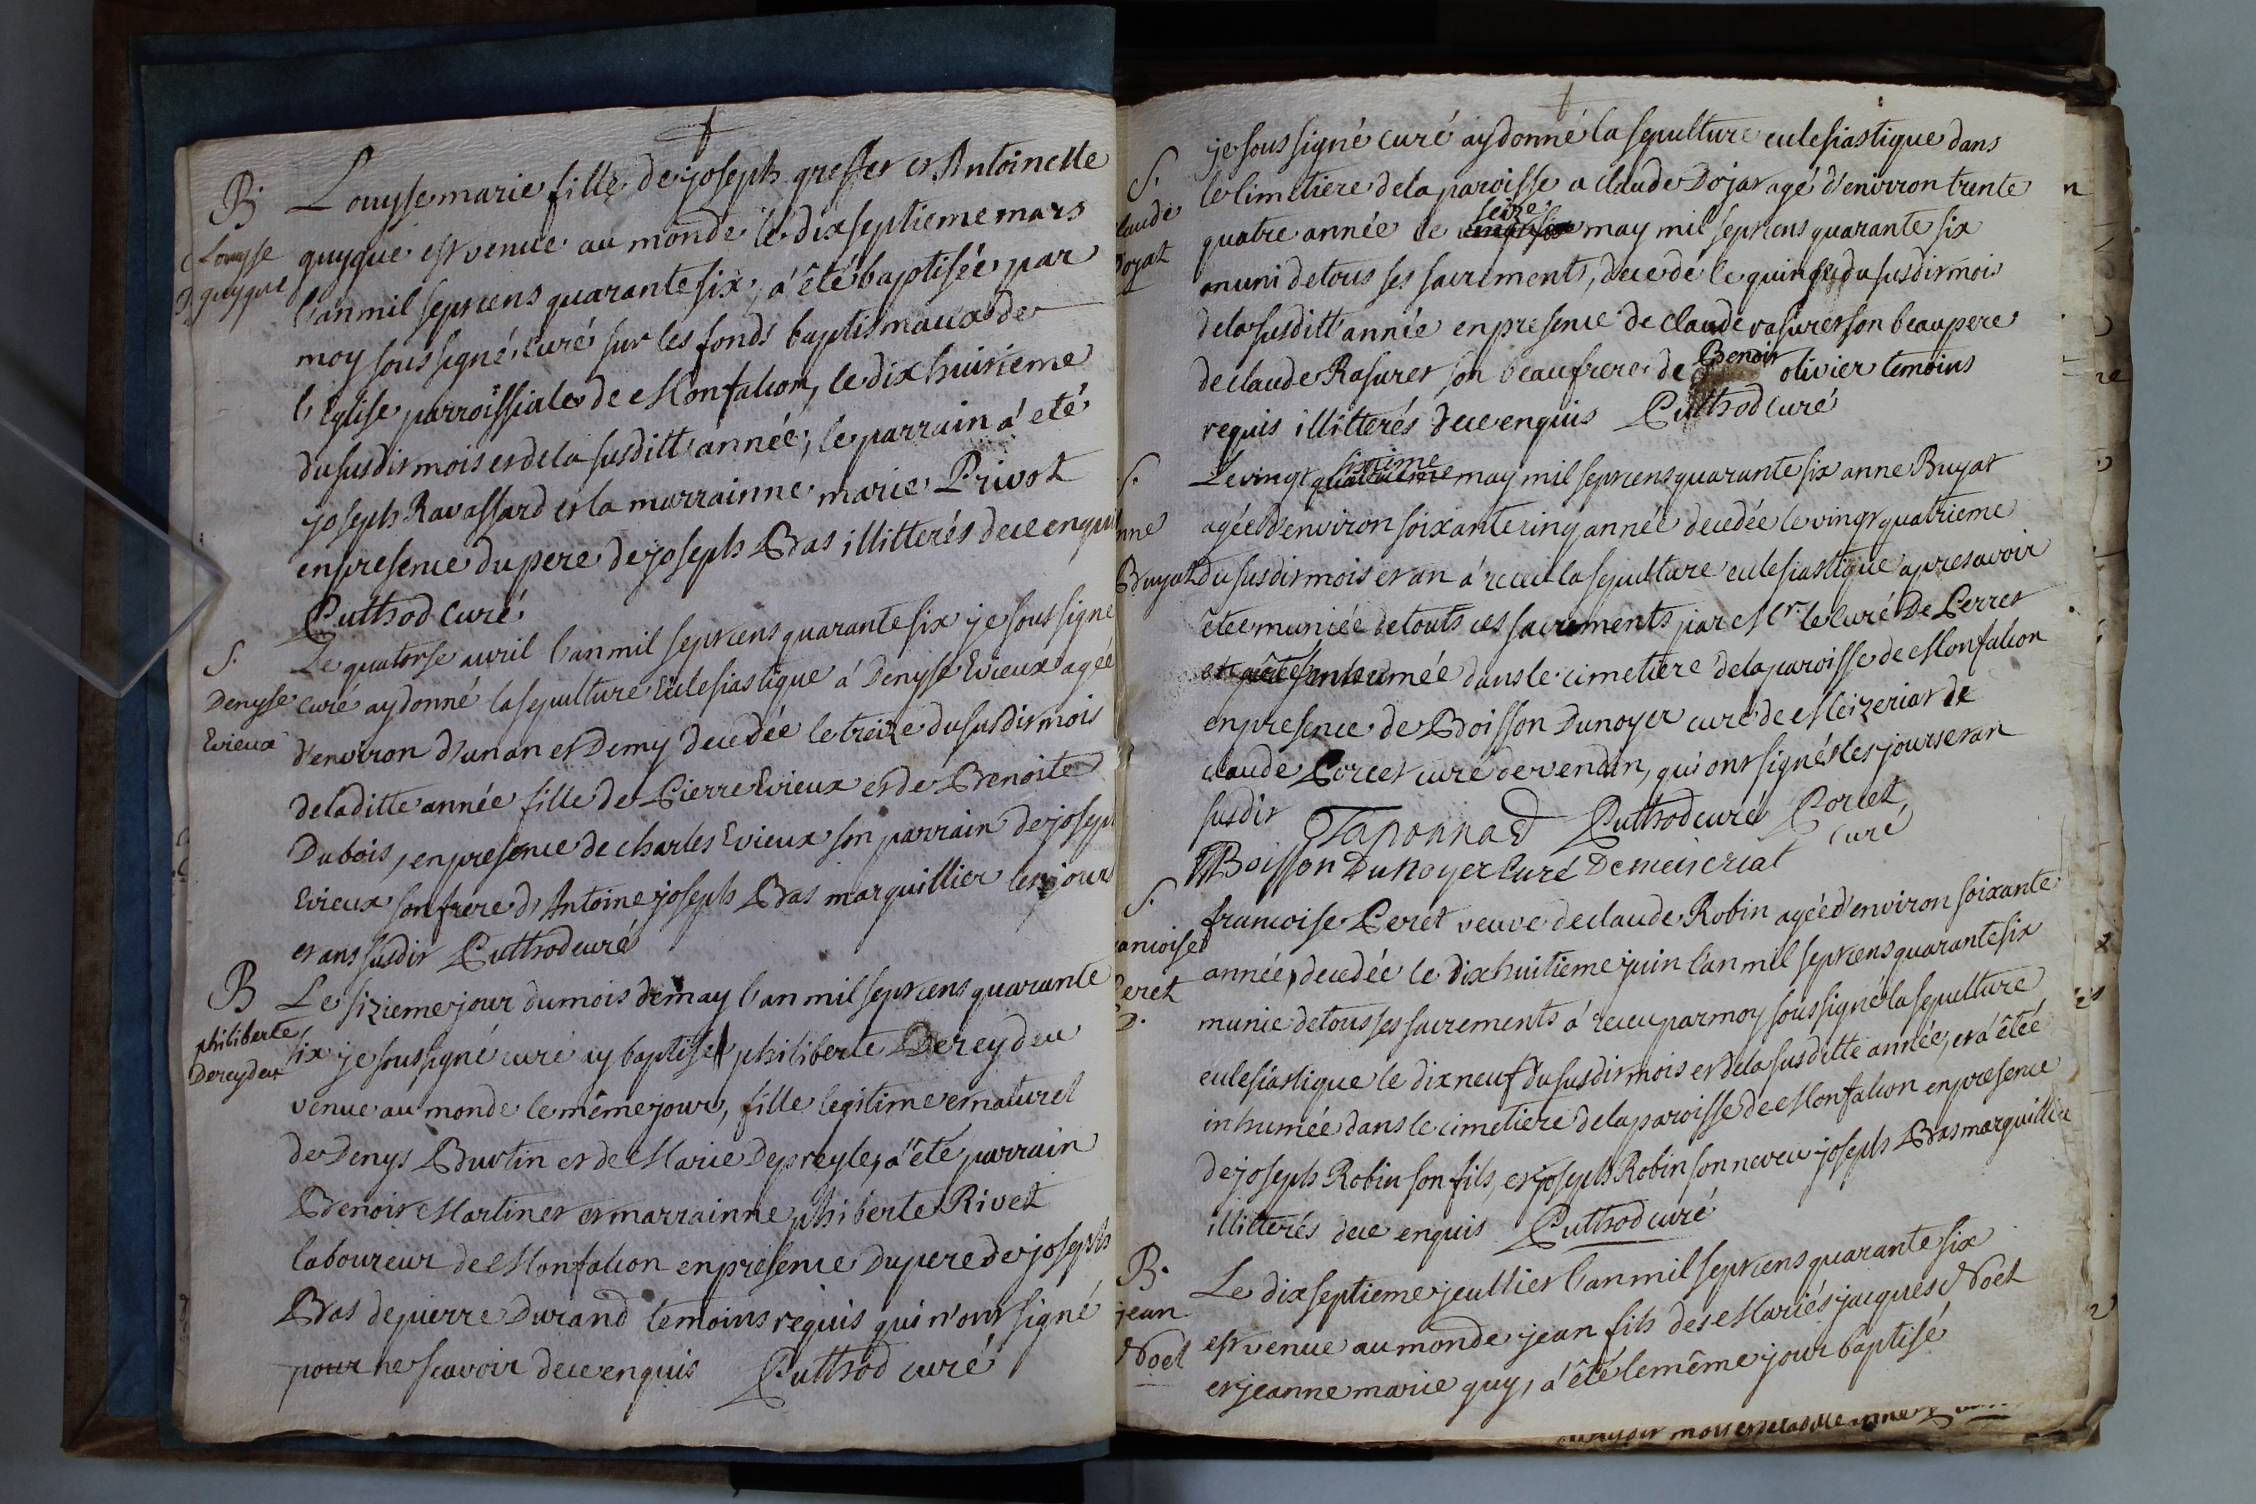 B.
Louyse
guygue
Louyse marie fille de joseph greffet et Antoinette
guygue est venue au monde le dix septieme mars
l'an mil sept cens quarante six, a été baptisée par
moy sous signé curé sur les fonds baptismaux de
l'Eglise parroissiale de Monfalcon, le dix huitieme
du susdit mois et de la susditt année, le parrain a eté
joseph Ravassard et la marrainne marie Privot
en presence du pere de joseph Bas illitterés de ce enquis
Puthod curé
S.
Denyse
Evieux
Le quatorse avril l'an mil sept cens quarante six je sous signé
curé ay donné la sepulture Eclesiastique á Denyse Evieux agée
d'environ d'un an et Demy decedée le treize du susdit mois
de laditte année fille de Pierre Evieux et de Benoite
Dubois, en presence de charles Evieux son parrain de joseph
Evieux son frere d'Antoine joseph Bas marguillier les jour
et ans susdit Puthod curé
B
philiberte
Dereydeu
Le sizieme jour du mois de may l'an mil sept cens quarante
six je soussigné curé ay baptisé philiberte Dereydeu
venue au monde le même jour, fille legitime et naturel
de Denys Burtin et de Marie Depreyle, a'été parrain
Benoit Martinet et marrainne phiberte Rivet
laboureur de Monfalcon en presence du pere de joseph
Bas de pierre Durand temoins requis qui n'ont signé
pour ne scavoir de ce enquis Puthod curé
S.
laude
Dojat
je sous signé curé ay donné la sepulture eclesiastique dans
le cimetiere de la paroisse a claude Dojat agé d'environ trente
quatre année le seize may mil sept cens quarante six
muni de tous ses sacrements, decedé le quinse du susdit mois
de la susditt année en presence de claude rasuret son beau pere
de claude Rasuret son beau frere de Benoit olivier temoins
requis illitterés de ce enquis Puthod curé
S.
nne
Buyat
Le vingt sixieme may mil sept cens quarante six anne Buyat
agée d'environ soixante cinq année decedée le vingt quatrieme
du susdit mois et an a receu la sepulture eclesiastique apres avoir
étée muniée de touts ces sacrements par Mr. le curé De Perret
enhumée dans le cimetiere de la paroisse de Monfalcon
en presence de Boisson Dunoyer curé de Meizeriat de
claude Porcet curé de vendin, qui ont signés les jours et an
susdit Taponnad Puthod curé Porcet
curé
Boisson Dunoyer Curé De meiseriat
S.
ancoise
Peret
D.
francoise Peret veuve de claude Robin agée d'environ soixante
année, decedée le dix huitieme juin l'an mil sept cens quarante six
munie de tous ses sacrements á receu par moy sous signé la sepulture
eclesiastique le dix neuf du susdit mois et de la susditte année, et a'étée
inhumée dans le cimetiere de la paroisse de Monfalcon en presence
de joseph Robin son fils, et joseph Robin son neveu joseph Bas marguillier
illitterés de ce enquis Puthod curé
B.
jean
Noel
Le dix septieme jeullier l'an mil sept cens quarante six
est venue au monde jean fils des Mariés jacques Noel
et jeanne marie guy, a'été le même jour baptisé